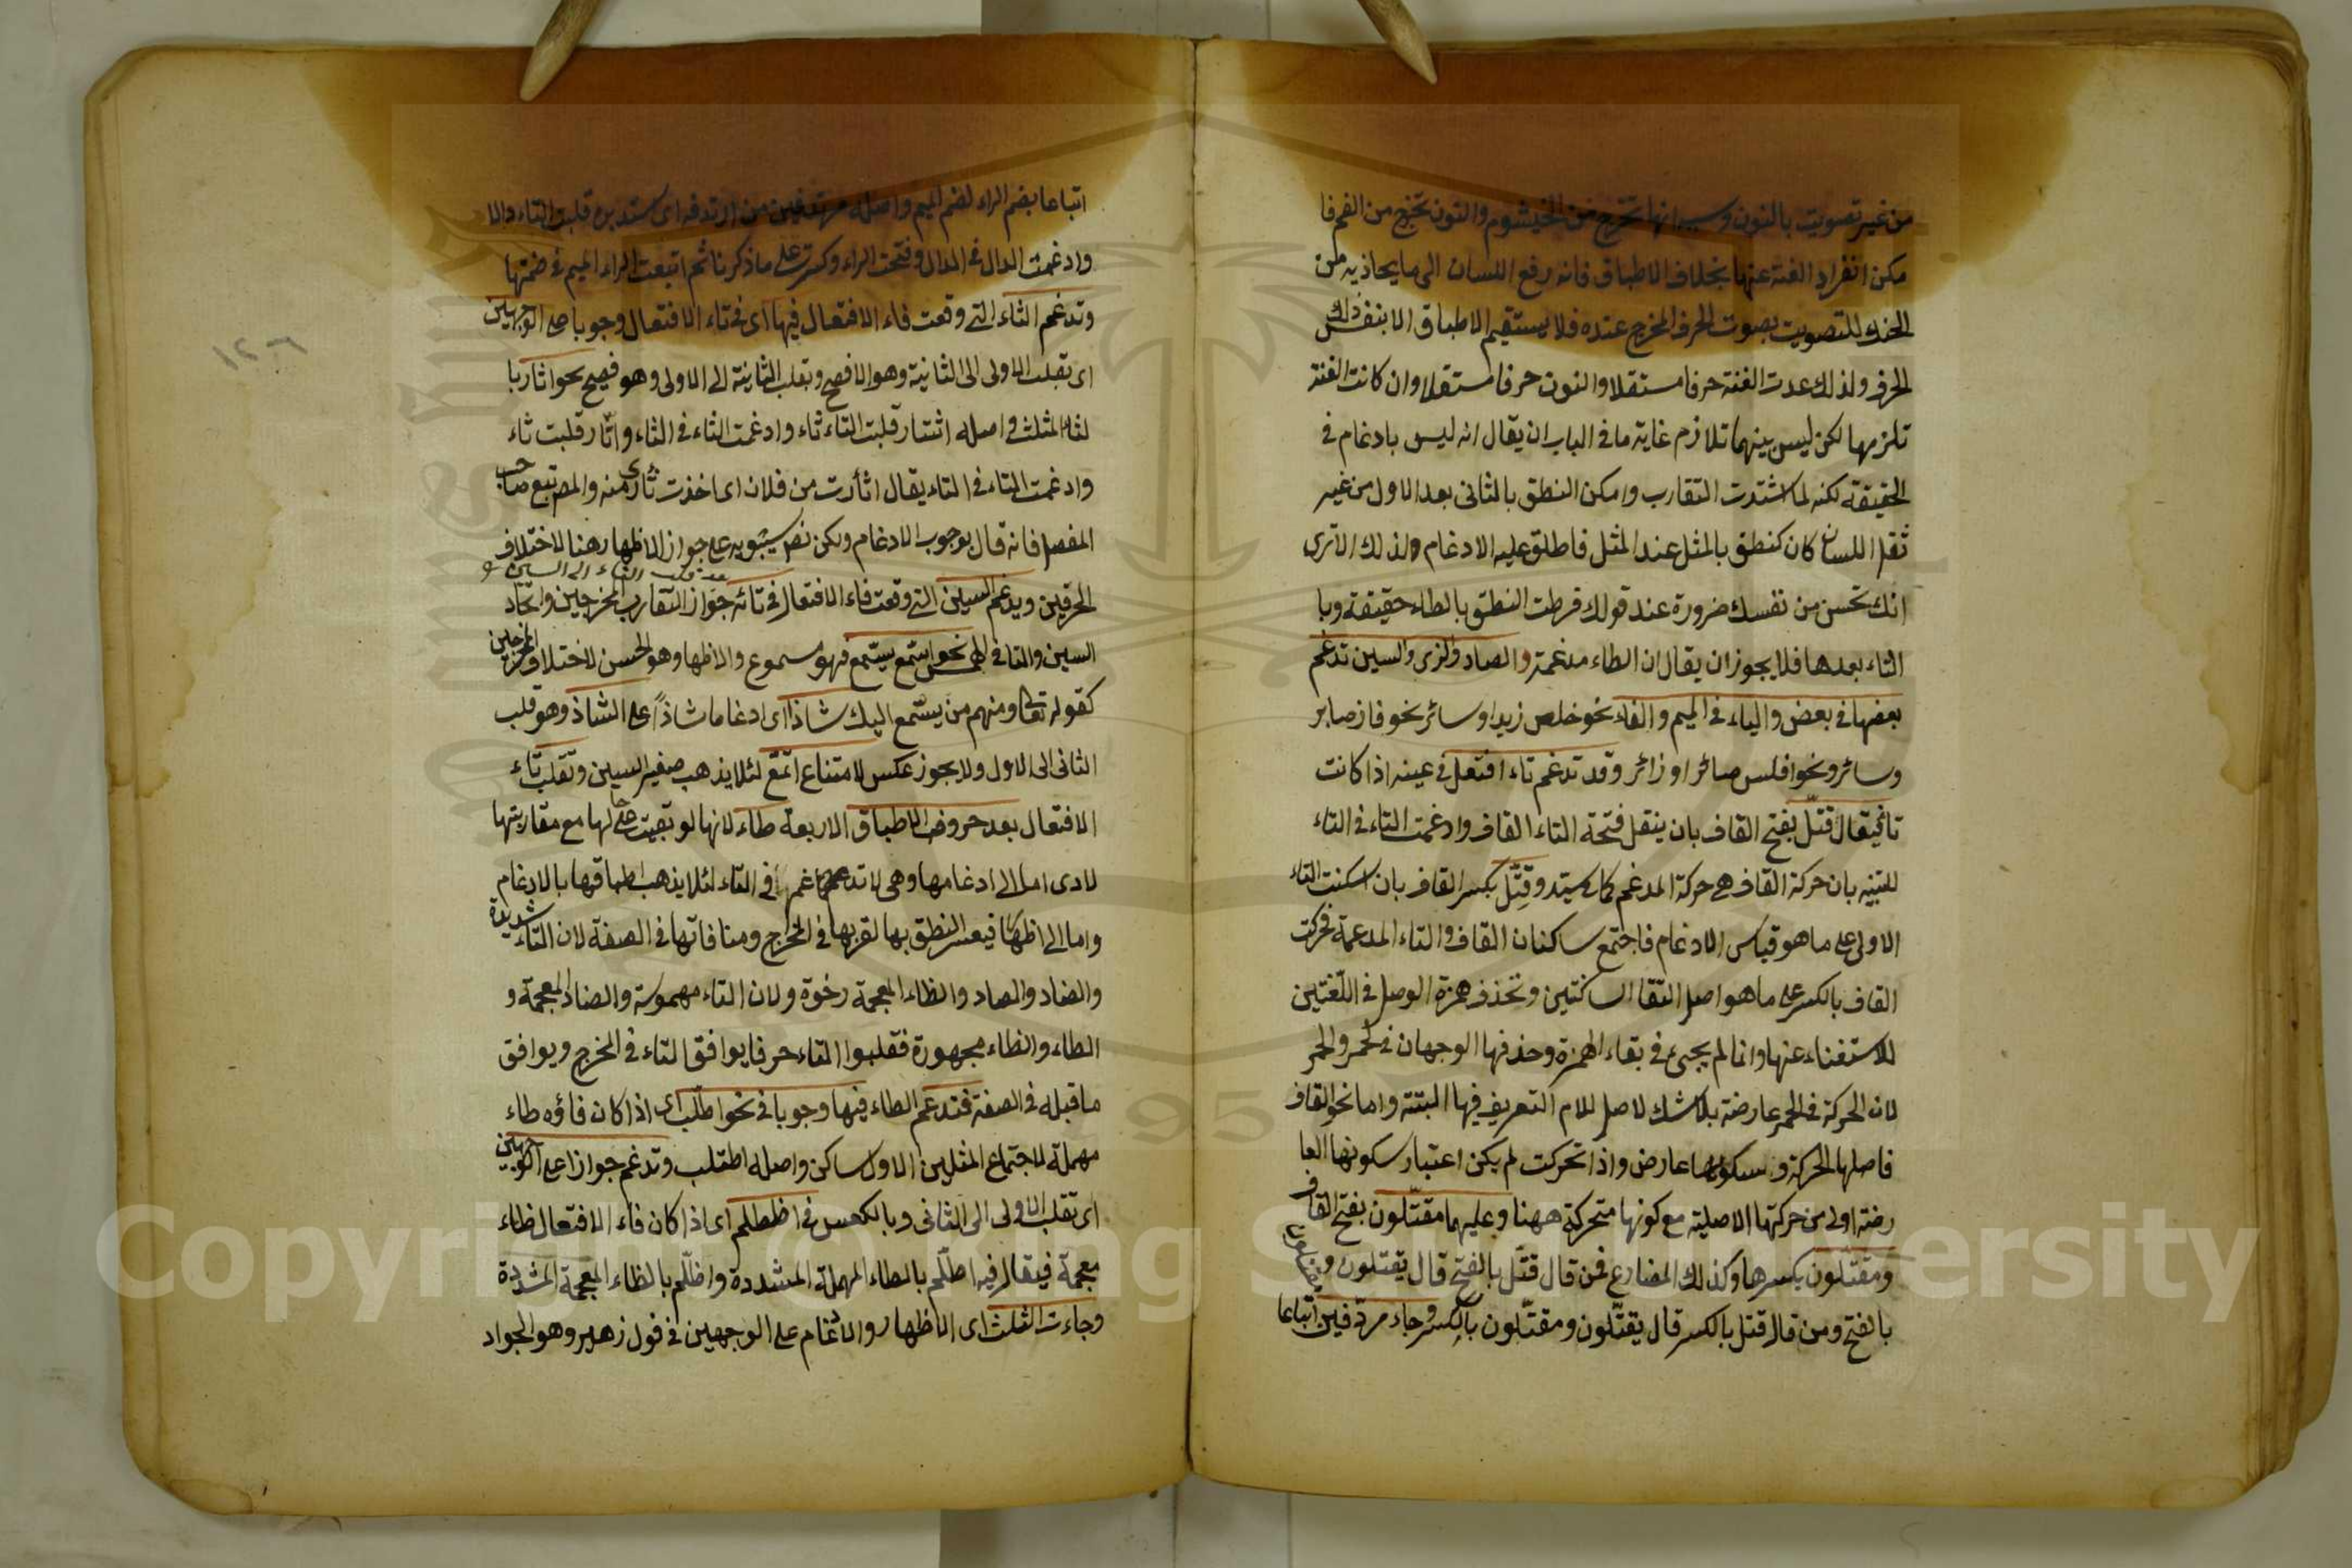 من غير تصويت بالنون وسيما انها تخرج من الخيشوم والنون تخرج من الفم فا
مكن انفراد الغنة عنها بخلاف الاطباق فانه رفع اللسان الى ما يحاذيه من
الحنك للتصويت بصوت الحرف المخرج عنده فلا يستقيم الاطباق الا بنفس ذلك
الحرف ولذلك عدت الغنة حرفا مستقلا والنون حرفا مستقلا وان كانت الغنة
تلزمها لكن ليس بينهما تلازم غاية ما في الباب ان يقال انه ليس بادغام في
الحقيقة لكنه لما اشتدت التقارب وامكن النطق بالثاني بعد الاول من غير
ثقل اللسان كان كنطق بالمثل عند المثل فاطلق عليه الادغام ولذلك الا ترى
انك تحسن من نفسك ضرورة عند قولك فرطت النطق بالطاء حقيقة وبا
التاء بعدها فلا يجوز ان يقال ان الطاء مدغمة والصاد والزى والسين تدغم
بعضها في بعض والباء في الميم والفاء نحو خلص زيدا وسائر نحو فاز صابر
وسائر ونحو افلس صائر او زائر وقد تدغم تاء افتعل في عينه اذا كانت
تاء فيقال قتّل بفتح القاف بان ينقل فتحة التاء القاف وادغمت التاء في التاء
للتنبيه بان حركة القاف هى حركة المدغم كما في يستد وقِتّل بكسر القاف بان اسكنت التاء
الاولى على ما هو قياس الادغام فاجتمع ساكنان القاف والتاء المدغمة فحركت
القاف بالكسر على ما هو اصل التقا الساكنين وتحذف همزة الوصل في اللغتين
للاستغناء عنها وانما لم يجىء في بقاء الهمزة وحذفها الوجهان في الحمر والحمر
لان الحركة في الحمر عارضة بلا شك لاصل للام التعريف فيها البتة واما نحو القاف
فاصلها الحركة وسكونها عارض واذا تحركت لم يكن اعتبار سكونها العا
رضة اولى من حركتها الاصلية مع كونها متحركة ههنا وعليهما مقتّلون بفتح القاف
ومقتّلون بكسرها وكذلك المضارع فمن قال قتّل بالفتح قال يقتّلون و
بالفتح ومن قال قتل بالكسر قال يقتّلون ومقتّلون بالكسر وجاء مردّفين اتباعا
اتباعا بضم الراء لضم الميم واصله مرتدفين من ارتدفه اى استدبره قلبت التاء دالا
وادغمت الدال في الدال وفتحت الراء وكسرت على ما ذكرنا ثم اتبعت الراء الميم في ضمتها
وتدغم الثاء التي وقعت فاء الافتعال فيها اى في تاء الافتعال وجوبا على الوجهين
اى تقلب الاولى الى الثانية وهو الافصح وتقلب الثانية الى الاولى وهو فصيح نحو اثار با
لثاء المثلث في اصله اثتار قلبت التاء ثاء وادغمت الثاء في الثاء واتّار قلبت ثاء
وادغمت التاء في التاء يقال اثأرت من فلان اى اخذت ثأرى منه والمص تبع صاحب
المفصل فانه قال بوجوب الادغام ولكن نص سيبويه على جواز الاظهار هنا لاختلاف
الحرفين ويدغم السين التي وقعت فاء الافتعال في تائه جواز التقارب المخرجين واتحاد
السين والتا في الهمس نحو اسّمع يسّمع فهو مسموع والاظهار هو الحسن لاختلاف المخرجين
كقوله تعالى ومنهم من يستمع اليك شاذا اى ادغاما شاذا على الشاذ وهو قلب
الثاني الى الاول ولا يجوز عكس لامتناع اتّمع لئلا يذهب صفير السين وتقلب تاء
الافتعال بعد حروف الاطباق الاربعة طاء لانها لو بقيت على حالها مع مقاربتها
لادى اما الى ادغامها وهى لا تدغم في التاء لئلا يذهب اطباقها بالادغام
واما الى اظهار فيعسر النطق بها لقربها في المخرج ومنافاتها في الصفة لان التاء شديدة
والضاد والصاد والظاء المعجمة رخوة ولان التاء مهموسة والضاد المعجمة و
الطاء والظاء مجهورة فقلبوا التاء حرفا يوافق التاء في المخرج ويوافق
ما قبله في الصفة فتدغم الطاء فيها وجوبا في نحو اطّلب اى اذا كان فاؤه طاء
مهملة لاجتماع المثلين الاول ساكن واصله اطتلب وتدغم جوازا على الوجهين
اى تقلب الاولى الى الثاني وبالعكس في اظطلم اى اذا كان فاء الافتعال ظاء
معجمة فيقال فيه اطّلم بالطاء المهملة المشددة واظّلم بالظاء المعجمة المشددة
وجاءت الثلث اى الاظهار والادغام على الوجهين في قول زهير وهو الجواد